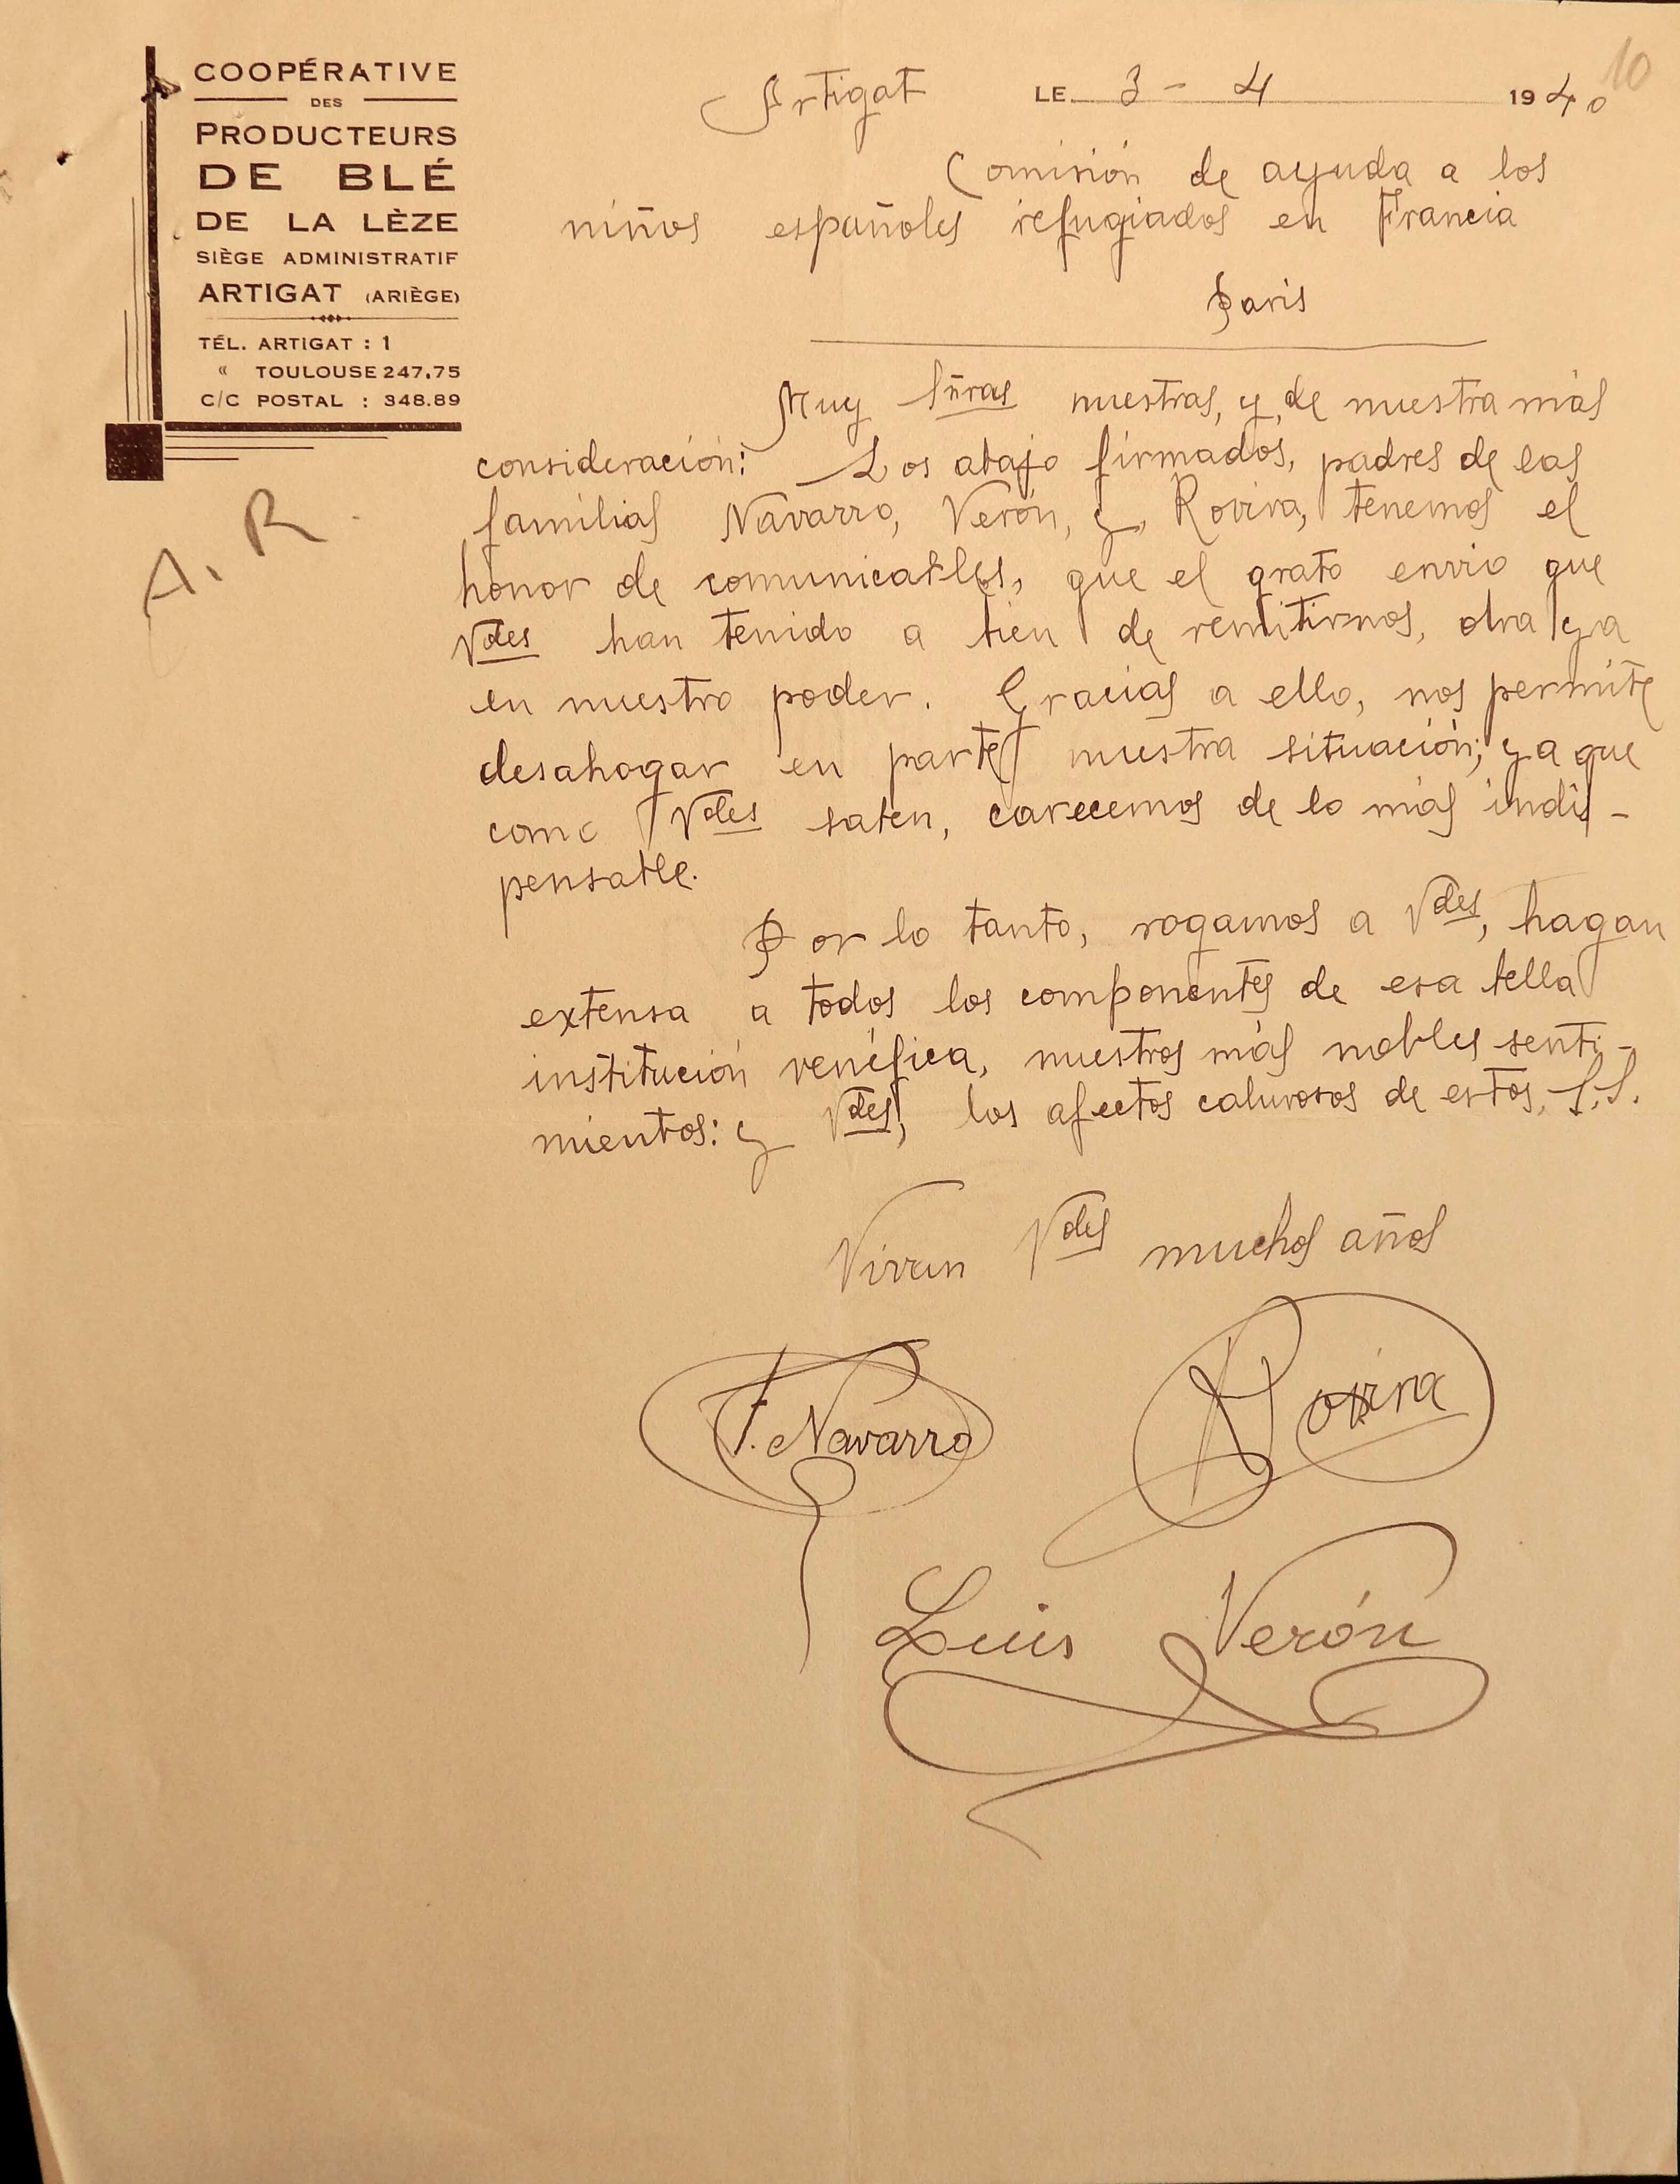 COOPÉRATIVE
DES
PRODUCTEURS
DE BLÉ
DE LA LÈZE
SIÈGE ADMINISTRATIF
ARTIGAT (ARIÈGE)
TÉL. ARTIGAT : 1
" TOULOUSE 247.75
C/C POSTAL : 348.89
A. R.
10
Artigat LE 3 - 4 1940
Comisión de ayuda a los
niños españoles refugiados en Francia
Paris
Muy Sñras nuestras, y, de nuestra más
consideración: Los abajo firmados, padres de las
familias Navarro, Verón, y, Rovira, tenemos el
honor de comunicarles, que el grato envio que
Vdes han tenido a bien de remitirnos, obra ya
en nuestro poder. Gracias a ello, nos permite
desahogar en parte nuestra situación; ya que
como Vdes saben, carecemos de lo más indis-
pensable.
Por lo tanto, rogamos a Vdes, hagan
extensa a todos los componentes de esa bella
institución venéfica, nuestros más nobles senti-
mientos: y Vdes, los afectos calurosos de estos, S.S.
Vivan Vdes muchos años
F. Navarro
Rovira
Luis Verón